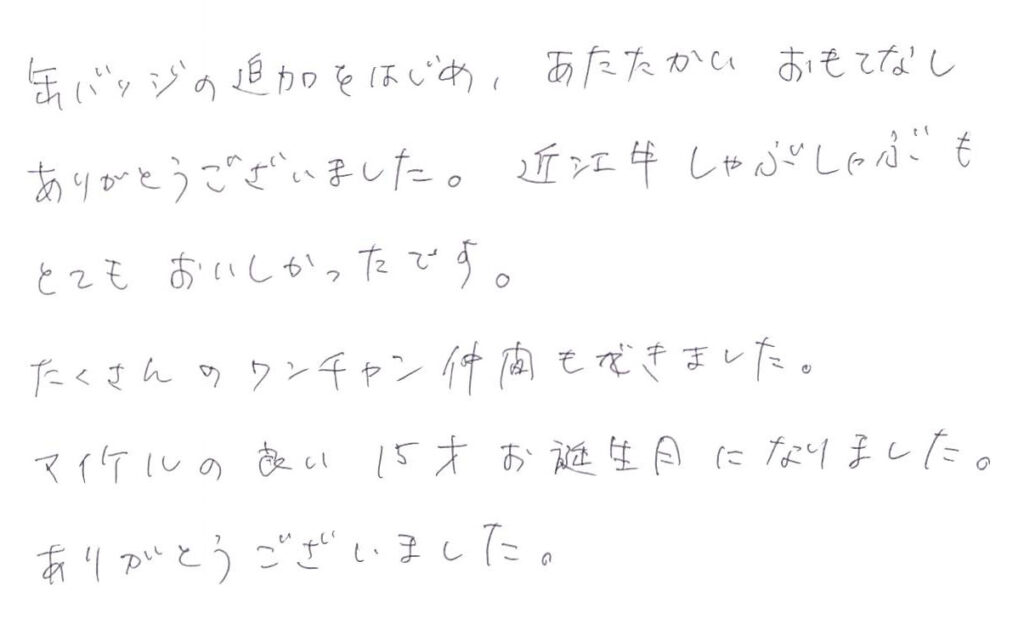 缶バッジの追加をはじめ、あたたかい おもてなし
ありがとうございました。近江牛しゃぶしゃぶも
とても おいしかったです。
たくさんのワンチャン仲間もできました。
マイケルの良い 15才 お誕生月になりました。
ありがとうございました。